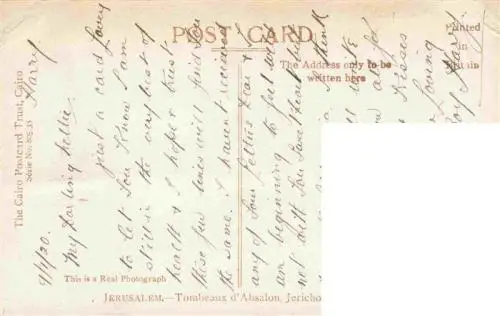 POST CARD
The Address only to be
written here
Printed
in
Britain
The Cairo Postcard Trust, Cairo
Serie No.
This is a Real Photograph
JERUSALEM.—Tombeaux d'Absalon, Jericho
9/4/20.
My Darling Nellie
just a card Lovey
to let you know I am
still in the very best of
health & I hope & trust
these few lines will find you
the same. I havent received
any of your letters Dear &
am beginning to feel well
not with you Sweetheart but
I think
Kisses
Loving
Boy Harry
Harry